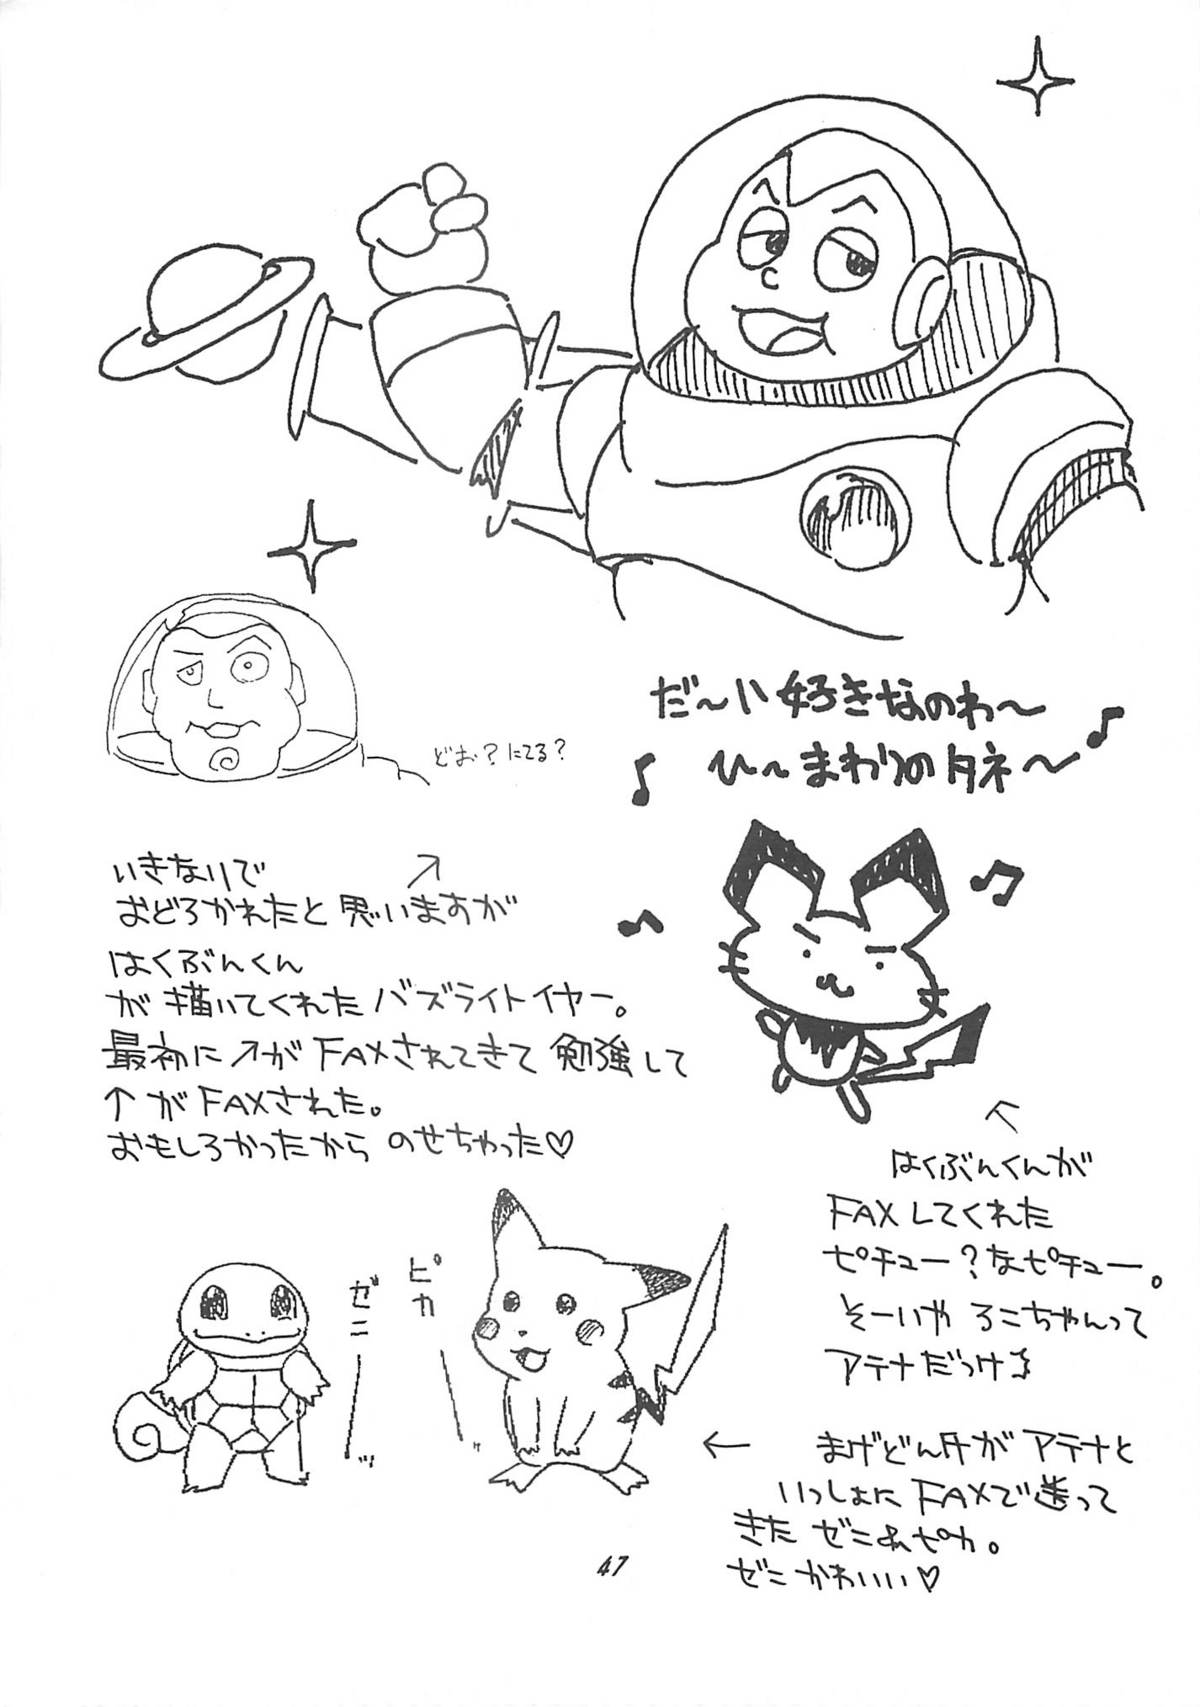 だ〜い好きなのわ〜
♪ ひ〜まわりのタネ〜♪
どお?にてる?
いきなりで ↗
おどろかれたと思いますが
はくぶんくん
が描いてくれたバズライトイヤー。
最初に↗がFAXされてきて勉強して
↑がFAXされた。
おもしろかったから のせちゃった♡
↖
はくぶんくんが
FAXしてくれた
ピチュー?なピチュー。
そーいや ろこちゃんって
アテナだっけ
ゼニーッ
ピカーッ
← まげどんタがアテナと
いっしょにFAXで送って
きた ゼニ&ピカ。
ゼニかわいい♡
47